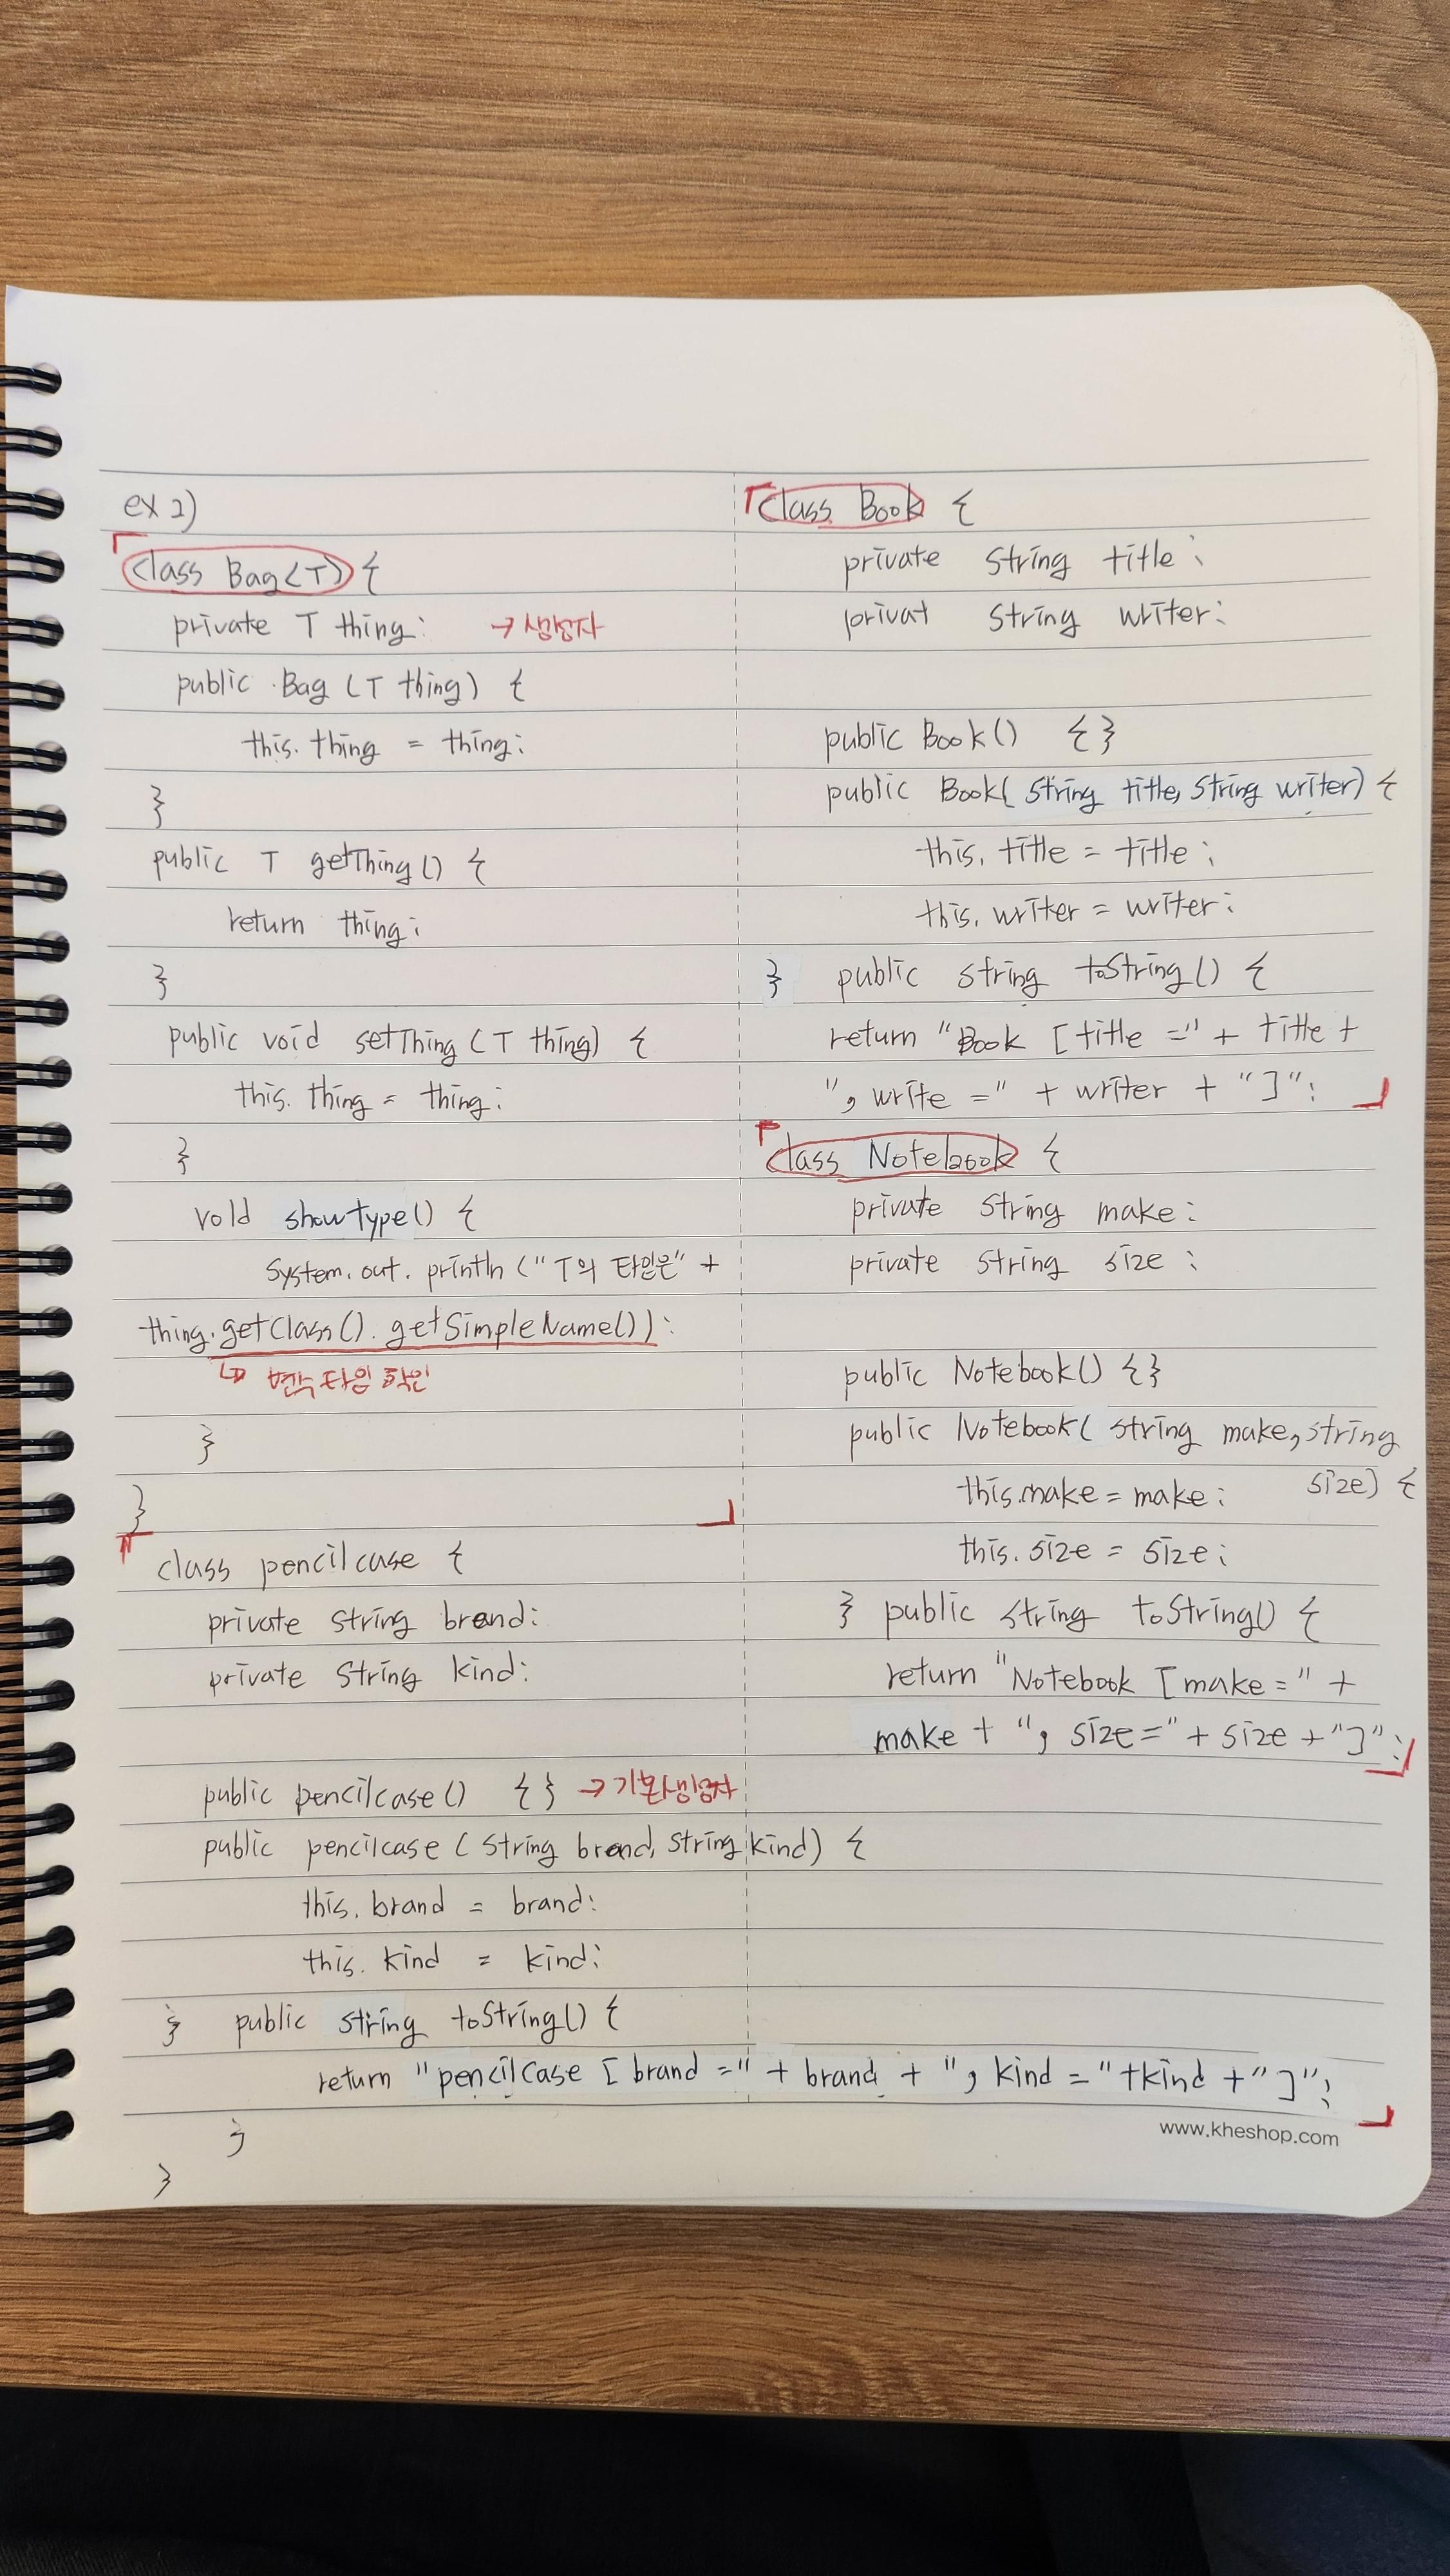 ex 2)
class Bag(T) {
private T thing; → 생성자
public Bag (T thing) {
this. thing = thing;
}
public T getThing() {
return thing;
}
public void setThing (T thing) {
this. thing = thing;
}
void showtype() {
System. out. println ("T의 타입은" +
thing. getClass(). getSimpleName());
↳ 변수 타입 확인
}
}
class pencilcase {
private String brand;
private String kind;
public pencilcase() { } → 기본생성자
public pencilcase (String brand, String kind) {
this. brand = brand;
this. kind = kind;
} public string toString() {
return "pencilcase [ brand =" + brand + ", kind = "+kind +" ]";
}
}
class Book {
private String title;
privat String writer;
public Book() { }
public Book( String title, String writer) {
this. title = title;
this. writer = writer;
} public string toString() {
return "Book [ title =" + title +
", write =" + writer + " ]";
class Notebook {
private String make;
private String size ;
public Notebook() { }
public Notebook( string make, string
size) {
this.make = make;
this. size = size;
} public string toString() {
return "Notebook [ make = " +
make + ", size=" + size + "]";
www.kheshop.com